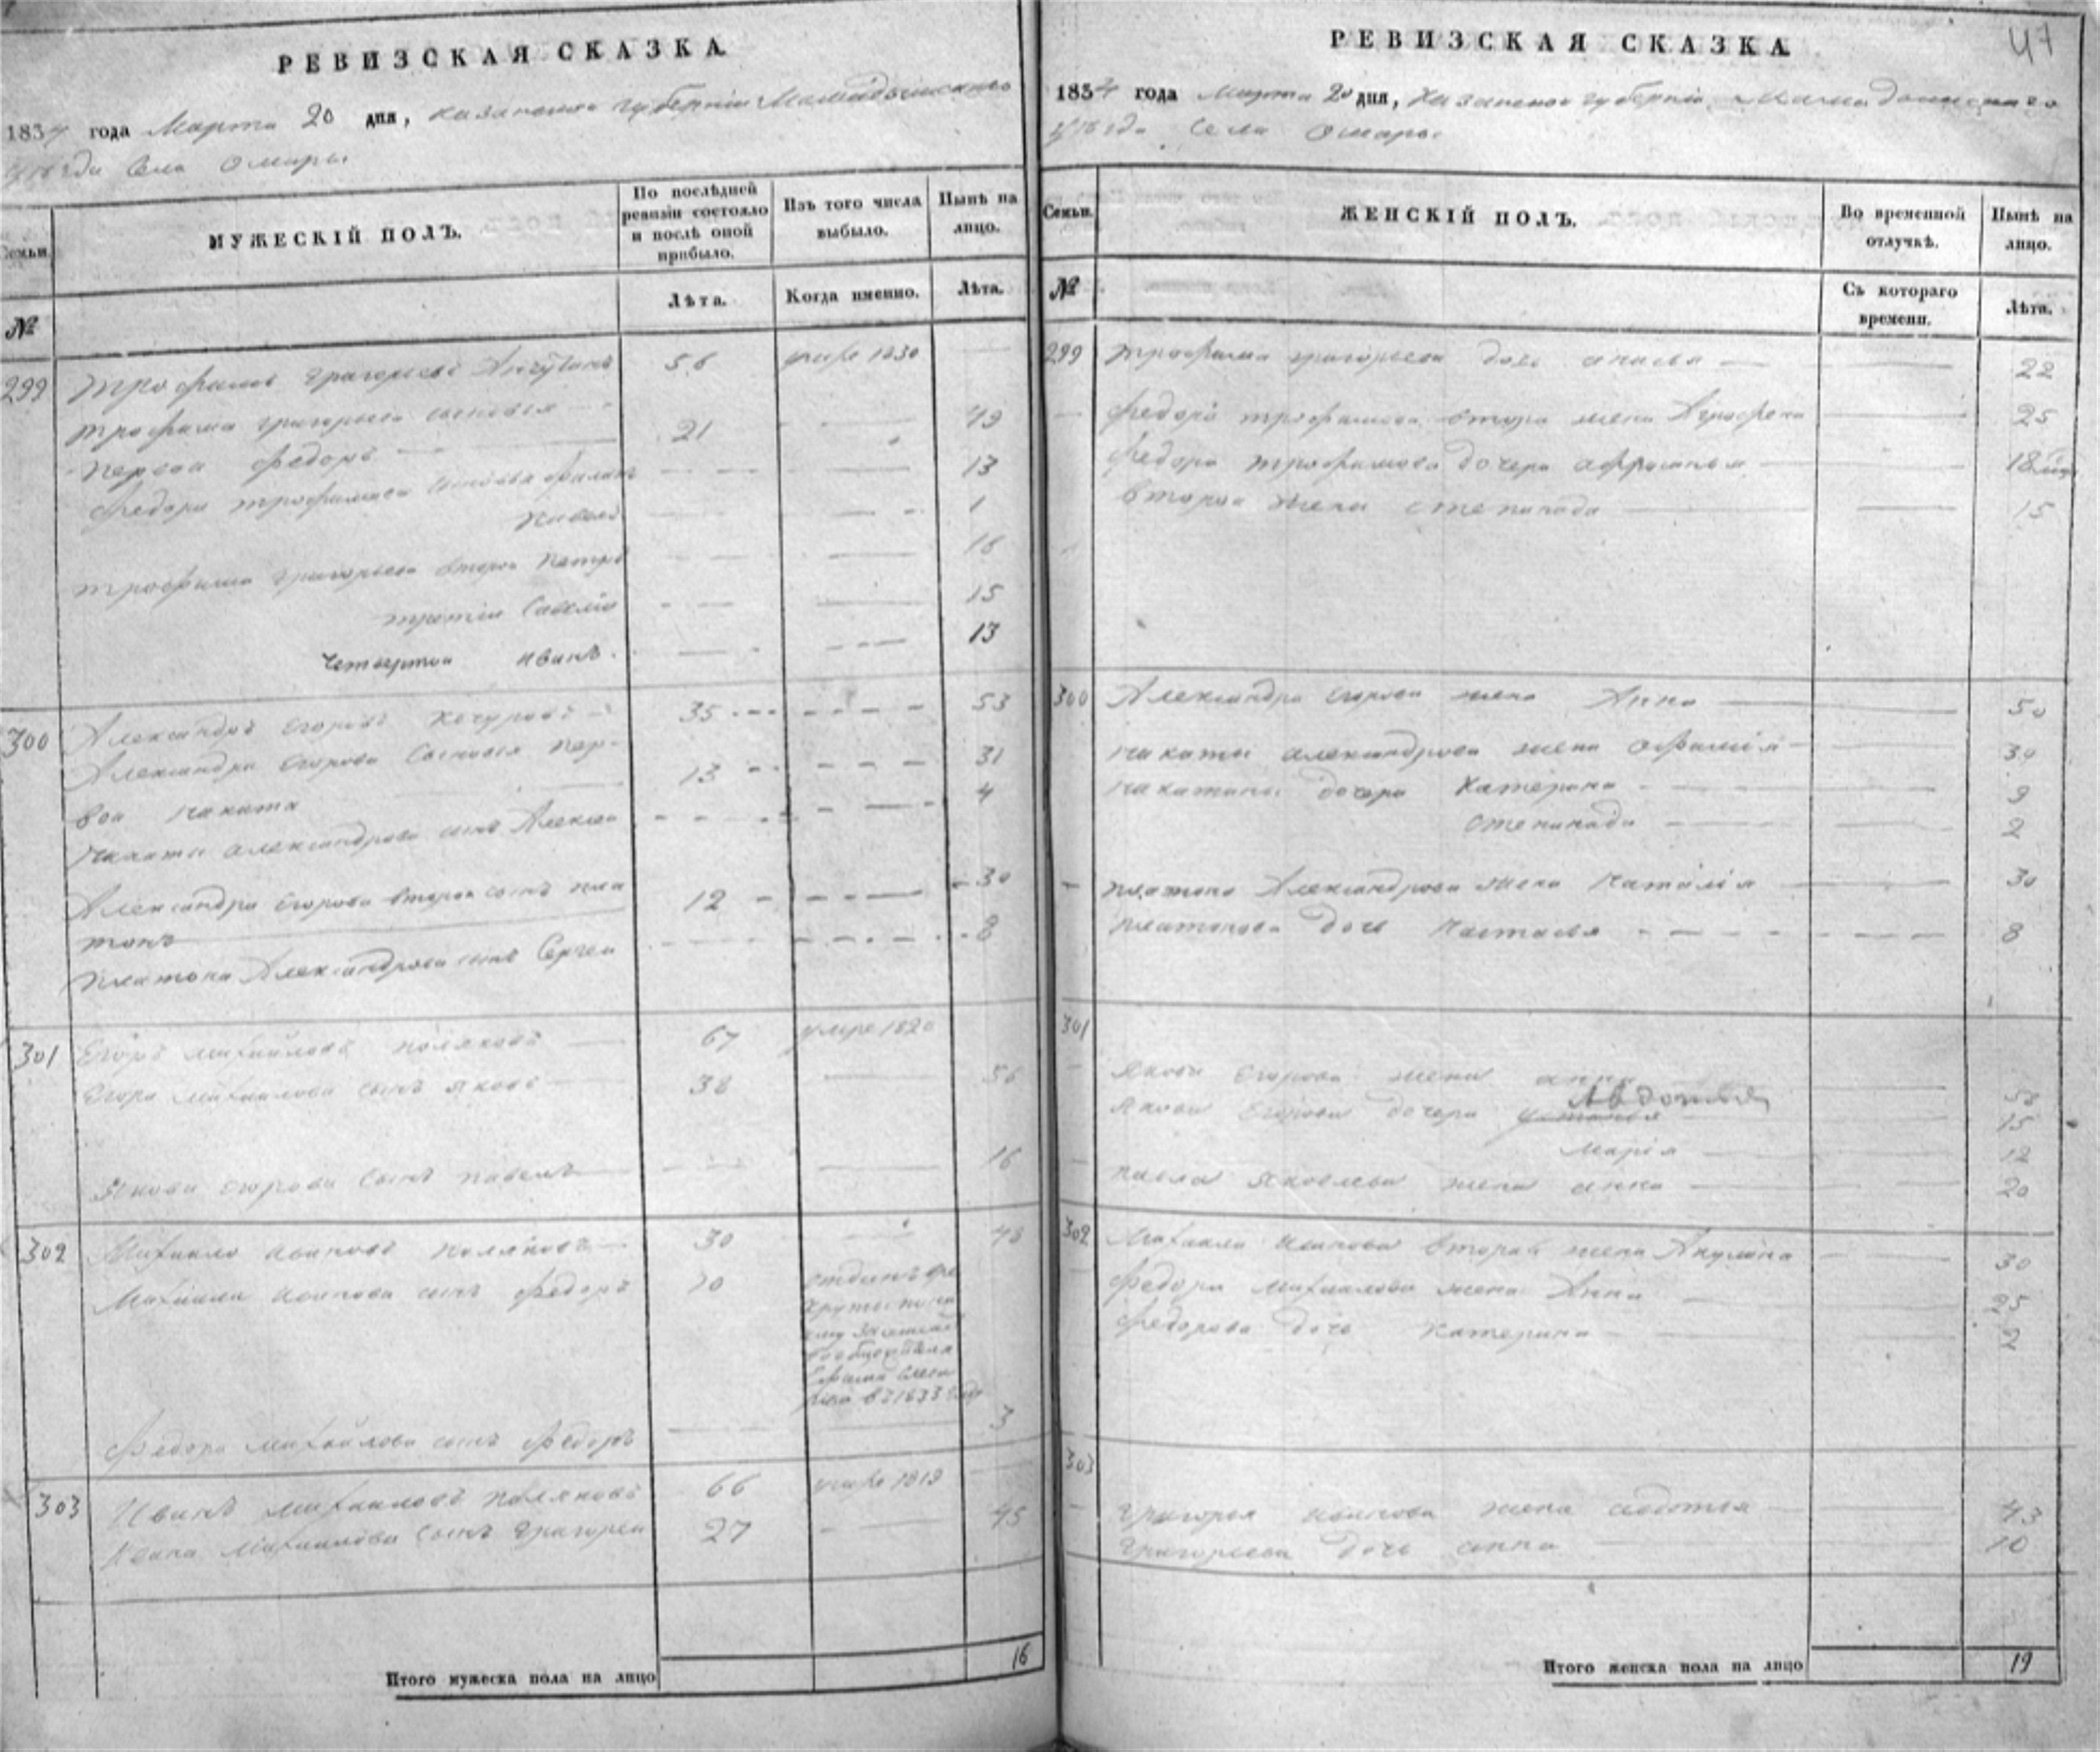 РЕВИЗСКАЯ СКАЗКА
1834 года Марта 20 дня, казанской губернии Мамадышскаго
уезда села Омары
Семьи.
МУЖЕСКІЙ ПОЛЪ.
По послѣдней ревизіи состояло и послѣ оной прибыло.
Изъ того числа выбыло.
Нынѣ на лицо.
№
Лѣта.
Когда именно.
Лѣта.
299 Трофимъ Григорьевъ 56 умре 1830
Трофима Григорьева сыновья
первой Федоръ 21 49
Федора Трофимова сыновья 13
1
Трофима Григорьева второй Петръ 18
третій Савелій 15
четвертой Иванъ 13
300 Александръ Егоровъ 35 53
Александра Егорова сыновья пер-
вой Никита 13 31
Никиты Александрова сынъ Алексей 4
Александра Егорова второй сынъ Пла
тонъ 12 30
Платона Александрова сынъ Сергей 8
301 Егоръ Михайловъ Поляковъ 67 умре 1820
Егора Михайлова сынъ Яковъ 38 56
Якова Егорова сынъ Павелъ 16
302 Михайло Ивановъ Поляковъ 30 48
Михайла Иванова сынъ Федоръ 10 отданъ
в 1833 году
Федора Михайлова сынъ Федоръ 3
303 Иванъ Михайловъ Поляковъ 66 умре 1819
Ивана Михайлова сынъ Григорей 27 45
Итого мужеска пола на лицо 16
47
РЕВИЗСКАЯ СКАЗКА
1834 года Марта 20 дня, Казанской губерніи, Мамадышскаго
уезда села Омары
Семьи.
ЖЕНСКІЙ ПОЛЪ.
Во временной отлучкѣ.
Нынѣ на лицо.
№
Съ котораго времени.
Лѣта.
299 Трофима Григорьева дочь 22
Федора Трофимова втора жена Аграфена 25
Федора Трофимова дочери 18
второй жены Степанида 15
300 Александра Егорова жена Анна 50
Никиты Александрова жена 30
Никитины дочери Катерина 9
Степанида 2
Платона Александрова жена Наталія 30
Платонова дочь Настасья 8
301
Якова Егорова жена анна
Якова Егорова дочери Авдотья 15
Марія 12
Павла Яковлева жена анна 20
302 Михайла Иванова вторая жена Акулина 30
Федора Михайлова жена Анна 25
Федорова дочь Катерина 2
303
Григорья Иванова жена авдотья 43
Григорьева дочь анна 10
Итого женска пола на лицо 19